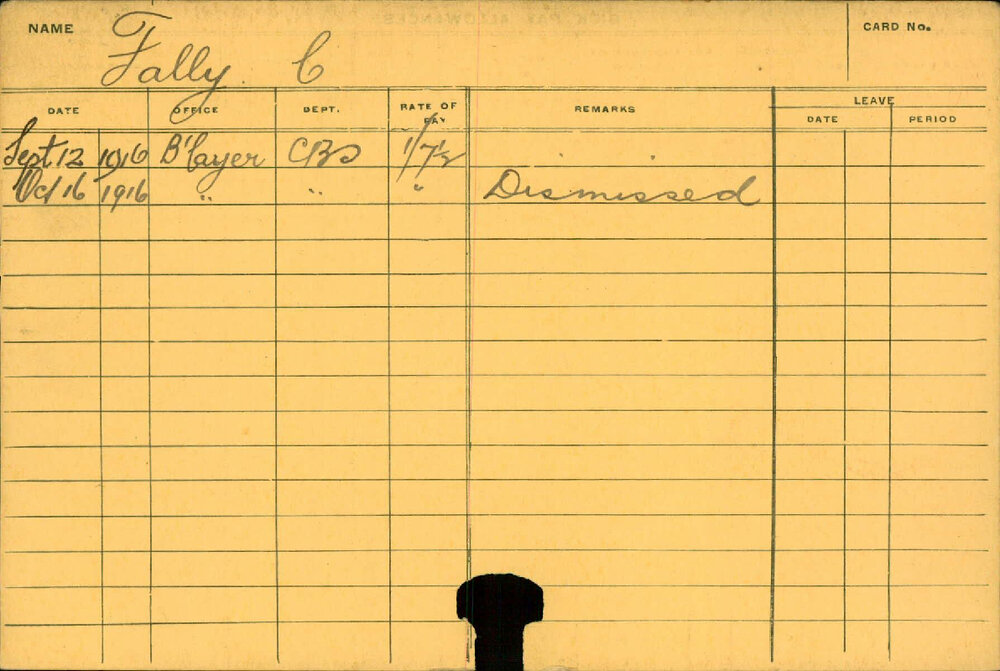 NAME Fally. C CARD No.
DATE OFFICE DEPT. RATE OF PAY REMARKS LEAVE
DATE PERIOD
Sept 12 1916 B'layer CBS 1/7½
Oct 16 1916 " " " Dismissed